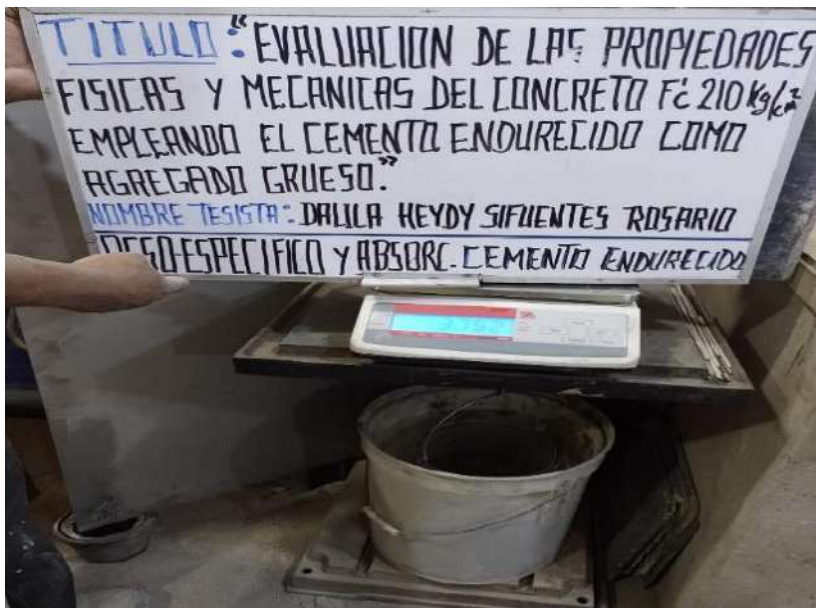 TITULO: "EVALUACION DE LAS PROPIEDADES
FISICAS Y MECANICAS DEL CONCRETO F'c 210 Kg/cm²
EMPLEANDO EL CEMENTO ENDURECIDO COMO
AGREGADO GRUESO."
NOMBRE TESISTA: DALILA HEYDY SIFUENTES ROSARIO
PESO ESPECIFICO Y ABSORC. CEMENTO ENDURECIDO